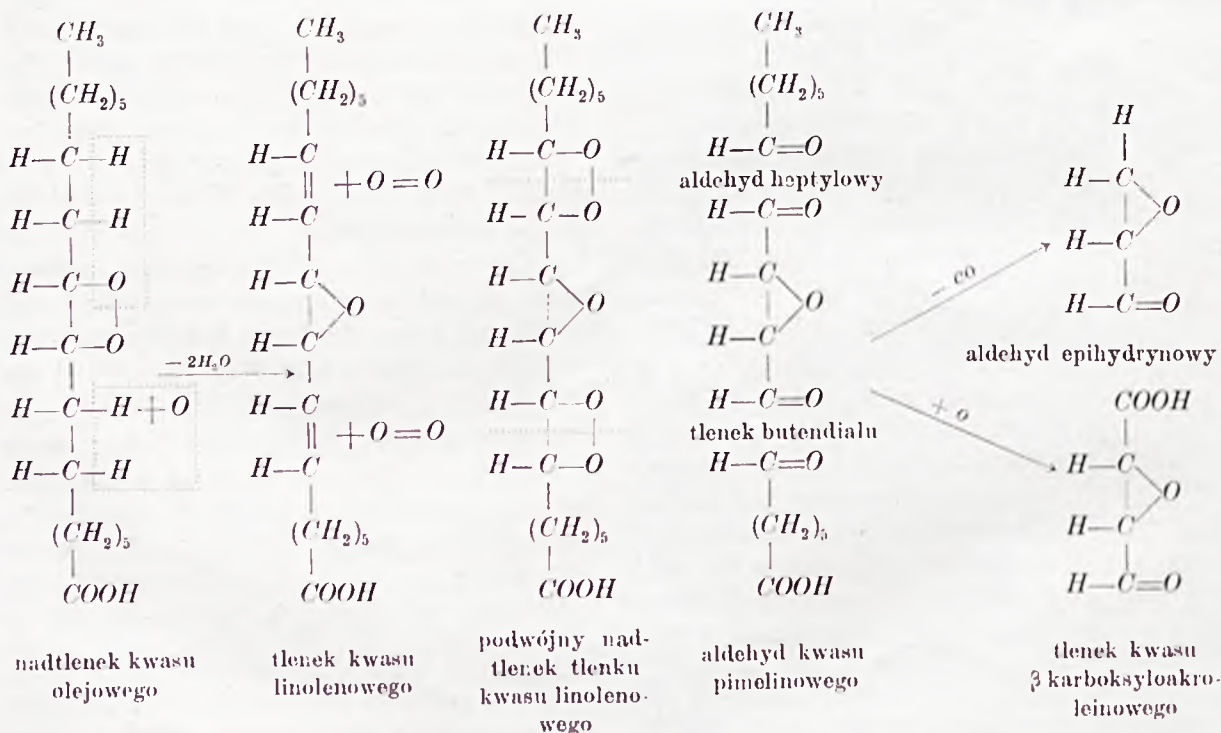 CH3
(CH2)5
H—C—H
H—C—H
H—C—O
H—C—O
H—C—H+O
H—C—H
(CH2)5
COOH
nadtlenek kwasu
olejowego
— 2H2O
CH3
(CH2)5
H—C
+O=O
H—C
H—C
O
H—C
H—C
+O=O
H—C
(CH2)5
COOH
tlenek kwasu
linolenowego
CH3
(CH2)5
H—C—O
H—C—O
H—C
O
H—C
H—C—O
H—C—O
(CH2)5
COOH
podwójny nad-
tlenek tlenku
kwasu linoleno-
wego
CH3
(CH2)5
H—C=O
aldehyd heptylowy
H—C=O
H—C
O
H—C
H—C=O
tlenek butendialu
H—C=O
(CH2)5
COOH
aldehyd kwasu
pimelinowego
— CO
+ O
H
H—C
O
H—C
H—C=O
aldehyd epihydrynowy
COOH
H—C
O
H—C
H—C=O
tlenek kwasu
β karboksyloakro-
leinowego